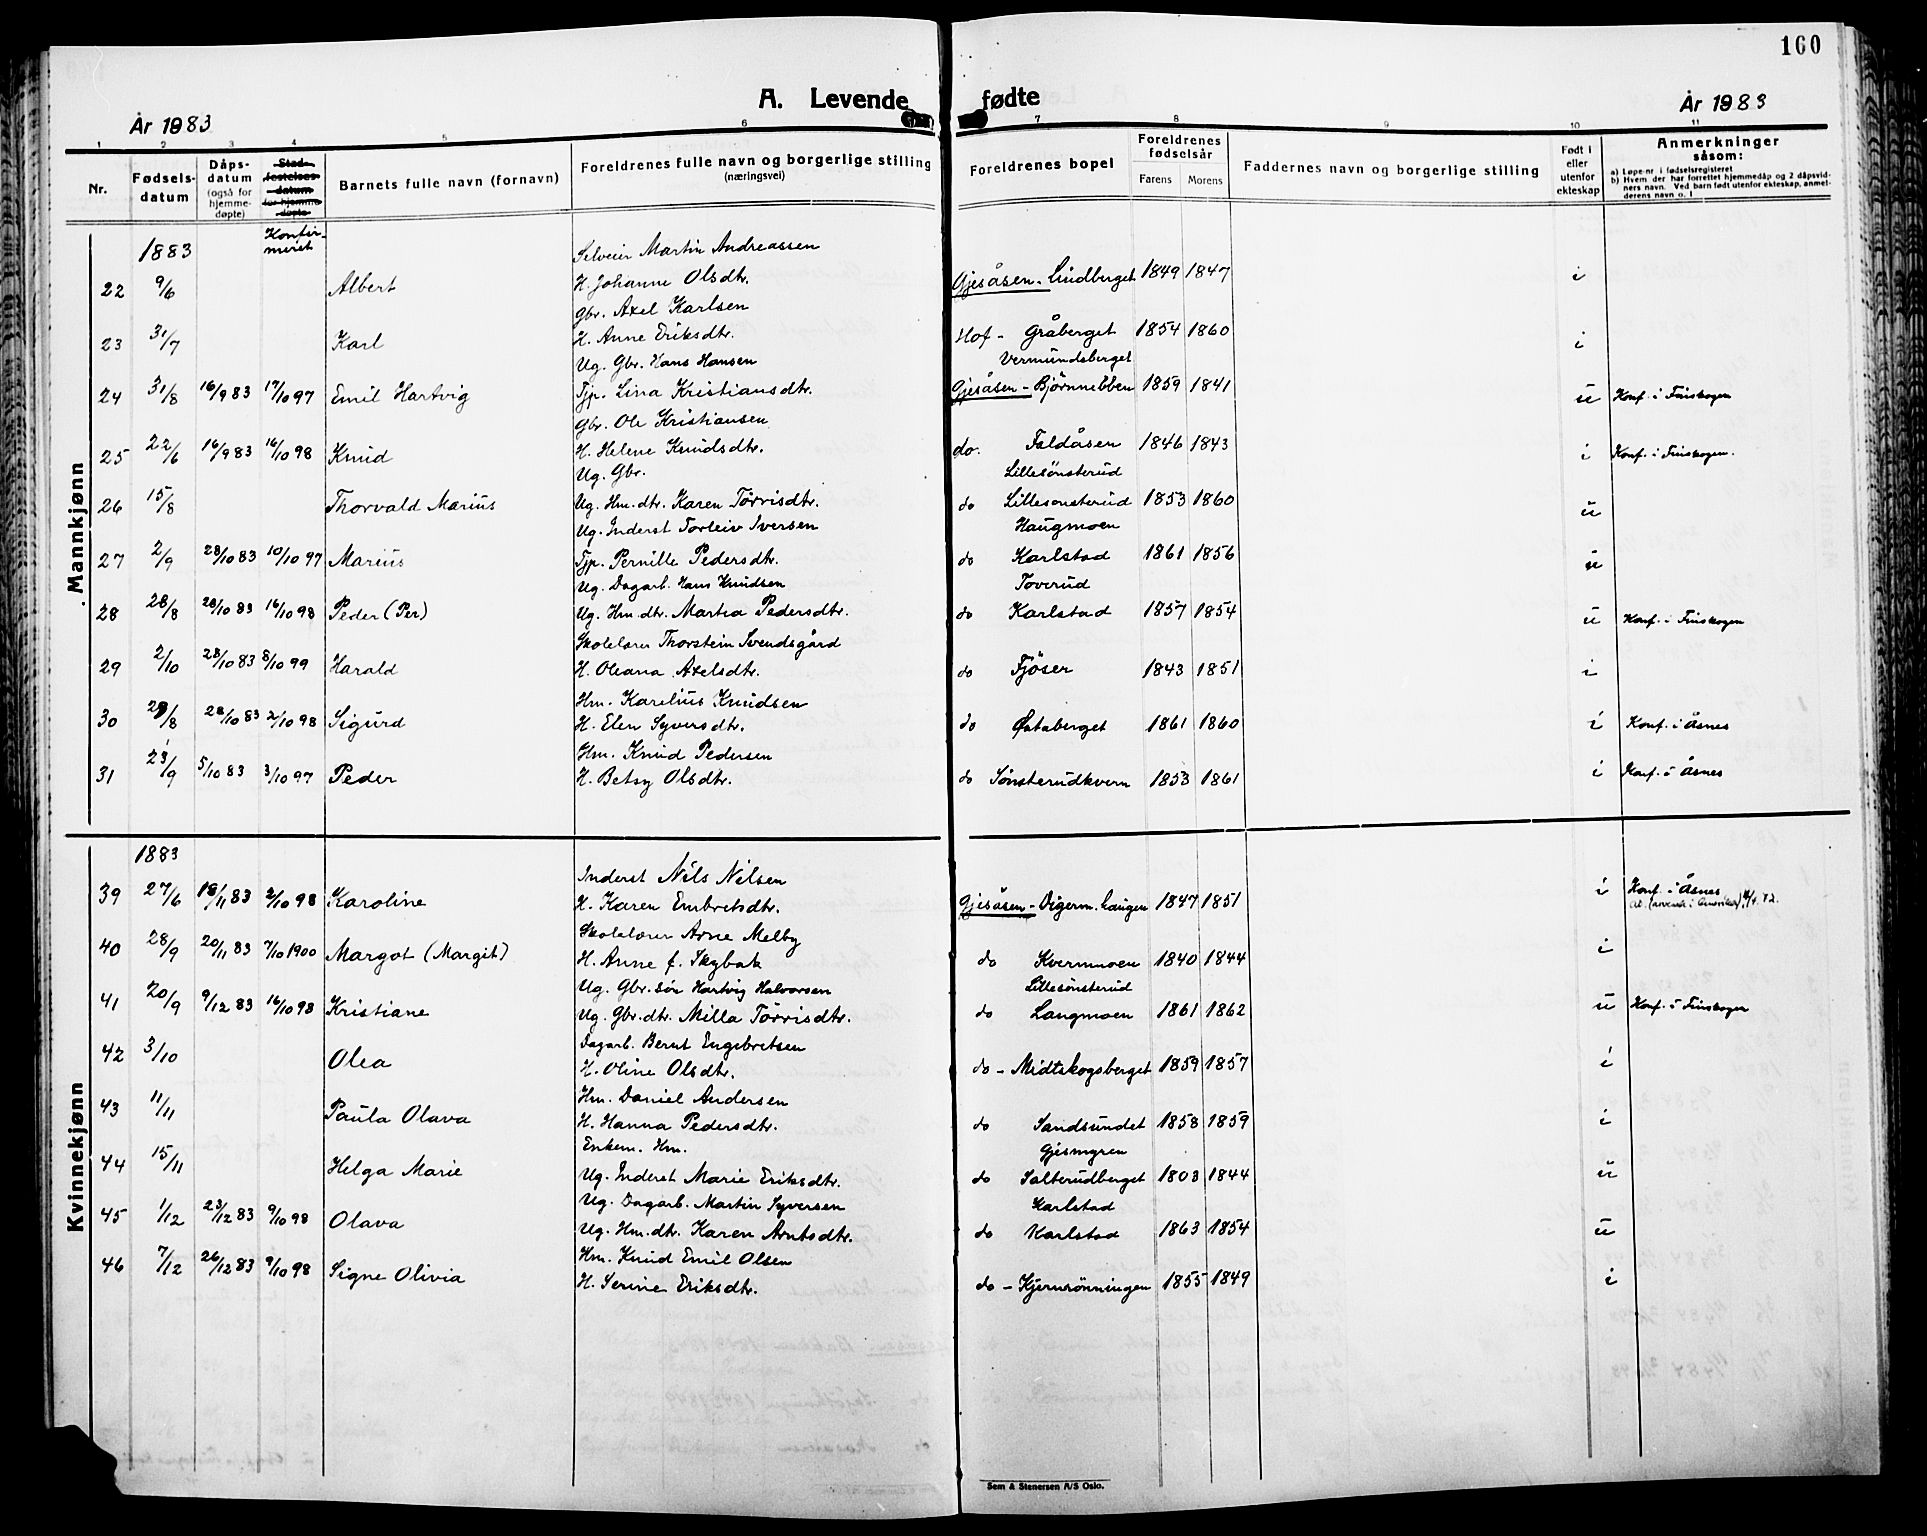 160
A. Levende fødte
År 1983
År 1883
1 2 3 4 5 6 7 8 9 10 11
Nr.
Fødsels-datum
Dåps-datum (også for hjemme-døpte)
Stad-festelses-datum for hjemme-døpte
Barnets fulle navn (fornavn)
Foreldrenes fulle navn og borgerlige stilling (næringsvei)
Foreldrenes bopel
Foreldrenes fødselsår
Farens Morens
Faddernes navn og borgerlige stilling
Født i eller utenfor ekteskap
Anmerkninger såsom:
a) Løpe-nr i fødselsregisteret
b) Hvem der har forrettet hjemmedåp og 2 dåpsvid-
ners navn. Ved barn født utenfor ekteskap, anmel-
derens navn o. l
Mannkjønn
1883 Konfir-meret
Selveier Martin Andreassen
22 9/6 Albert H. Johanne Olsdtr. Gjesåsen - Lindberget 1849 1847 i
Gbr. Axel Karlsen
23 31/7 Karl H. Anne Eriksdtr. Hof - Gråberget 1854 1860 i
Ug. Gbr. Hans Hansen Vermundsberget
24 31/8 16/9 83 17/10 97 Emil Hartvig Tjp. Lina Kristiansdtr. Gjesåsen - Bjørnnebben 1859 1841 u Konf. i Finskogen
Gbr. Ole Kristiansen
25 22/6 16/9 83 16/10 98 Knud H. Helene Knudsdtr. do. Faldåsen 1846 1843 i Konf. i Finskogen.
Ug. Gbr. Lillesønsterud
26 15/8 Thorvald Marius Ug. Hm. dtr. Karen Tørrisdtr. do Lillesønsterud 1853 1860 u
Ug. Inderst Torleiv Iversen Haugmoen
27 2/9 28/10 83 10/10 97 Marius Tjp. Pernille Pedersdtr. do Karlstad 1861 1856 u
Ug. Dagarb. Hans Knudsen Toverud
28 28/8 28/10 83 16/10 98 Peder (Per) Ug. Hm. dtr. Martia Pedersdtr. do Karlstad 1857 1854 u Konf. i Finskogen
Skolelærer Thorstein Svendsgård
29 2/10 28/10 83 8/10 99 Harald H. Oleana Axelsdtr. do Fjøser 1843 1851 i
Hm. Karelius Knudsen
30 29/8 28/10 83 2/10 98 Sigurd H. Elen Syversdtr. do Østaberget 1861 1860 i Konf. i Åsnes
Hm. Knud Pedersen
31 23/9 5/10 83 3/10 97 Peder H. Betsy Olsdtr. do Sønsterudkvern 1853 1861 i Konf. i Åsnes
Kvinnekjønn
1883
Inderst Nils Nilsen
39 27/6 18/11 83 2/10 98 Karoline H. Karen Embretsdtr. Gjesåsen - Digerm. Laugen 1847 1851 i Konf. i Åsnes
Skolelærer Arne Melby
40 28/9 20/11 83 7/10 1900 Margot (Margit) H. Anne f. Skybak do Kvernmoen 1840 1844 i
Ug. Gbr. søn Hartvig Halvorsen Lillesønsterud
41 20/9 9/12 83 16/10 98 Kristiane Ug. Gbr. dtr. Milla Tørrisdtr. do Langmoen 1861 1862 u Konf. i Finskogen
Dagarb. Bernt Engebretsen
42 3/10 Olea H. Oline Olsdtr. do - Midtskogsberget 1859 1857 i
Hm. Daniel Andersen
43 11/11 Paula Olava H. Hanna Pedersdtr. do Sandsundet 1858 1859 i
Enkem. Hm. Gjesmyren
44 15/11 Helga Marie Ug. Inderst Marie Eriksdtr. do Salterudberget 1803 1844 u
Ug. Dagarb. Martin Syversen Karlstad
45 1/12 23/12 83 9/10 98 Olava Ug. Hm. dtr. Karen Arntsdtr. do Karlstad 1863 1854 u
Hm. Knud Emil Olsen
46 7/12 26/12 83 9/10 98 Signe Olivia H. Serine Eriksdtr. do - Kjernrønningen 1855 1849 i
Sem & Stenersen A/S Oslo.